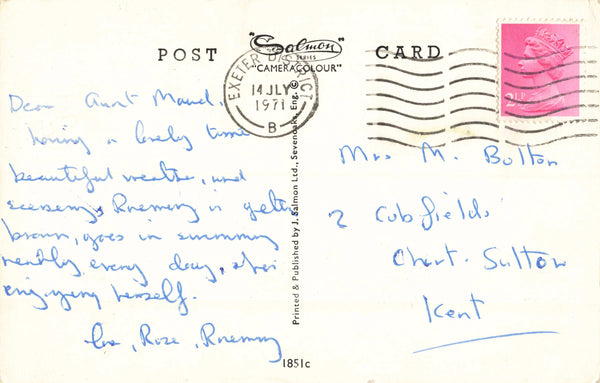 POST CARD
"Salmon"
SERIES
"CAMERACOLOUR"
EXETER DISTRICT
14 JLY
1971
B
2½P
Dear Aunt Maud,
having a lovely time
beautiful weather, and
scenery, Rosemary is getting
brown, goes in swimming
nearly every day, she's
enjoying herself.
love, Rose, Rosemary
Mrs M. Bolton
2 Cobfields
Chart-Sutton
Kent
Printed & Published by J. Salmon Ltd., Sevenoaks, Eng. ©
1851c